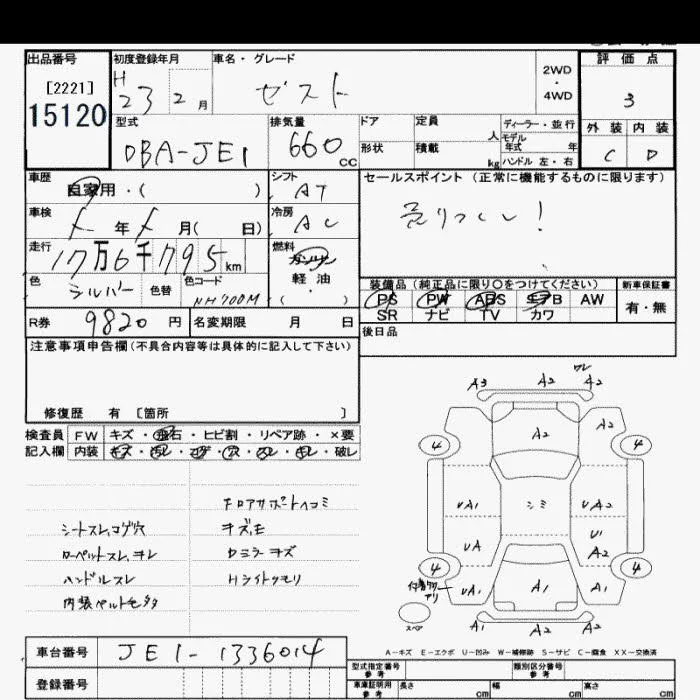 出品番号 初度登録年月 車名・グレード 2WD・4WD 評価点
[2221] H 23 2月 ゼスト 3
15120
型式 排気量 ドア 定員 人 ディーラー・並行 外装 内装
DBA-JE1 660cc 形状 積載 kg モデル年式 年 ハンドル 左・右 C D
車歴 自家用・( ) シフト AT セールスポイント (正常に機能するものに限ります)
車検 年 月( 日) 冷房 AC 売りつくし!
走行 17万6千795km 燃料 ガソリン 軽油・( )
色 シルバー 色替 色コード NH700M
装備品 (純正品に限り〇をつけてください) 新車保証書
PS PW ABS エアB AW 有・無
SR ナビ TV カワ
R券 9820円 名変期限 月 日 後日品
注意事項申告欄(不具合内容等は具体的に記入して下さい)
修復歴 有 [箇所 ]
検査員 FW キズ・飛石・ヒビ割・リペア跡・×要
記入欄 内装 キズ・汚レ・コゲ・穴・スレ・キレ・破レ
シートスレ、コゲ穴
ハンドルスレ
キズ、モ
Dミラーキズ
Hライトクモリ
A3 A2 ワレ A2
A2 A2
4 4
UA1 シミ UA2
UA U1 A2
4 4
UA1 A1 A1
アリ
スペア A1 A2 A2
A-キズ E-エクボ U-凹み W-補修跡 S-サビ C-腐食 XX-交換済
車台番号 JE1-1336014
型式指定番号 参考 類別区分番号 参考
登録番号 車庫証明用 参考 長さ cm 幅 cm 高さ cm